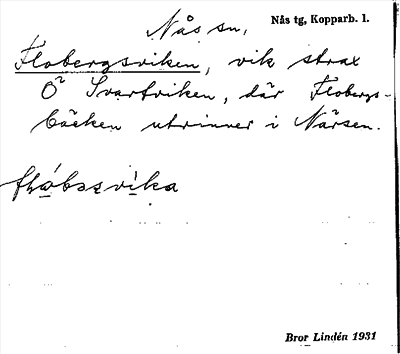 Nås sn,
Nås tg, Kopparb. l.
Flobergsviken, vik strax
Ö Svartviken, där Flobergs-
bäcken utrinner i Närsen.
Bror Lindén 1931